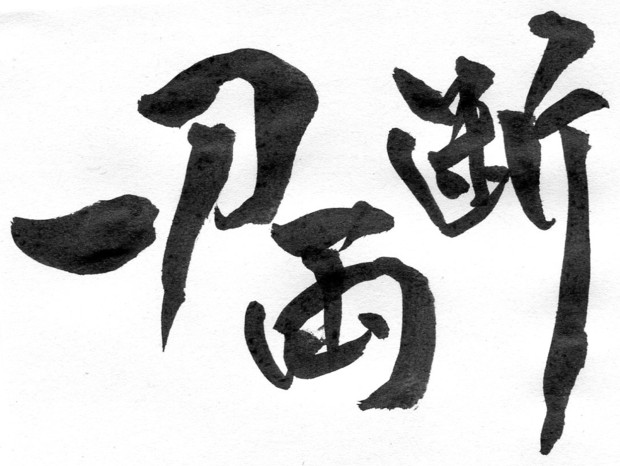 一刀両断